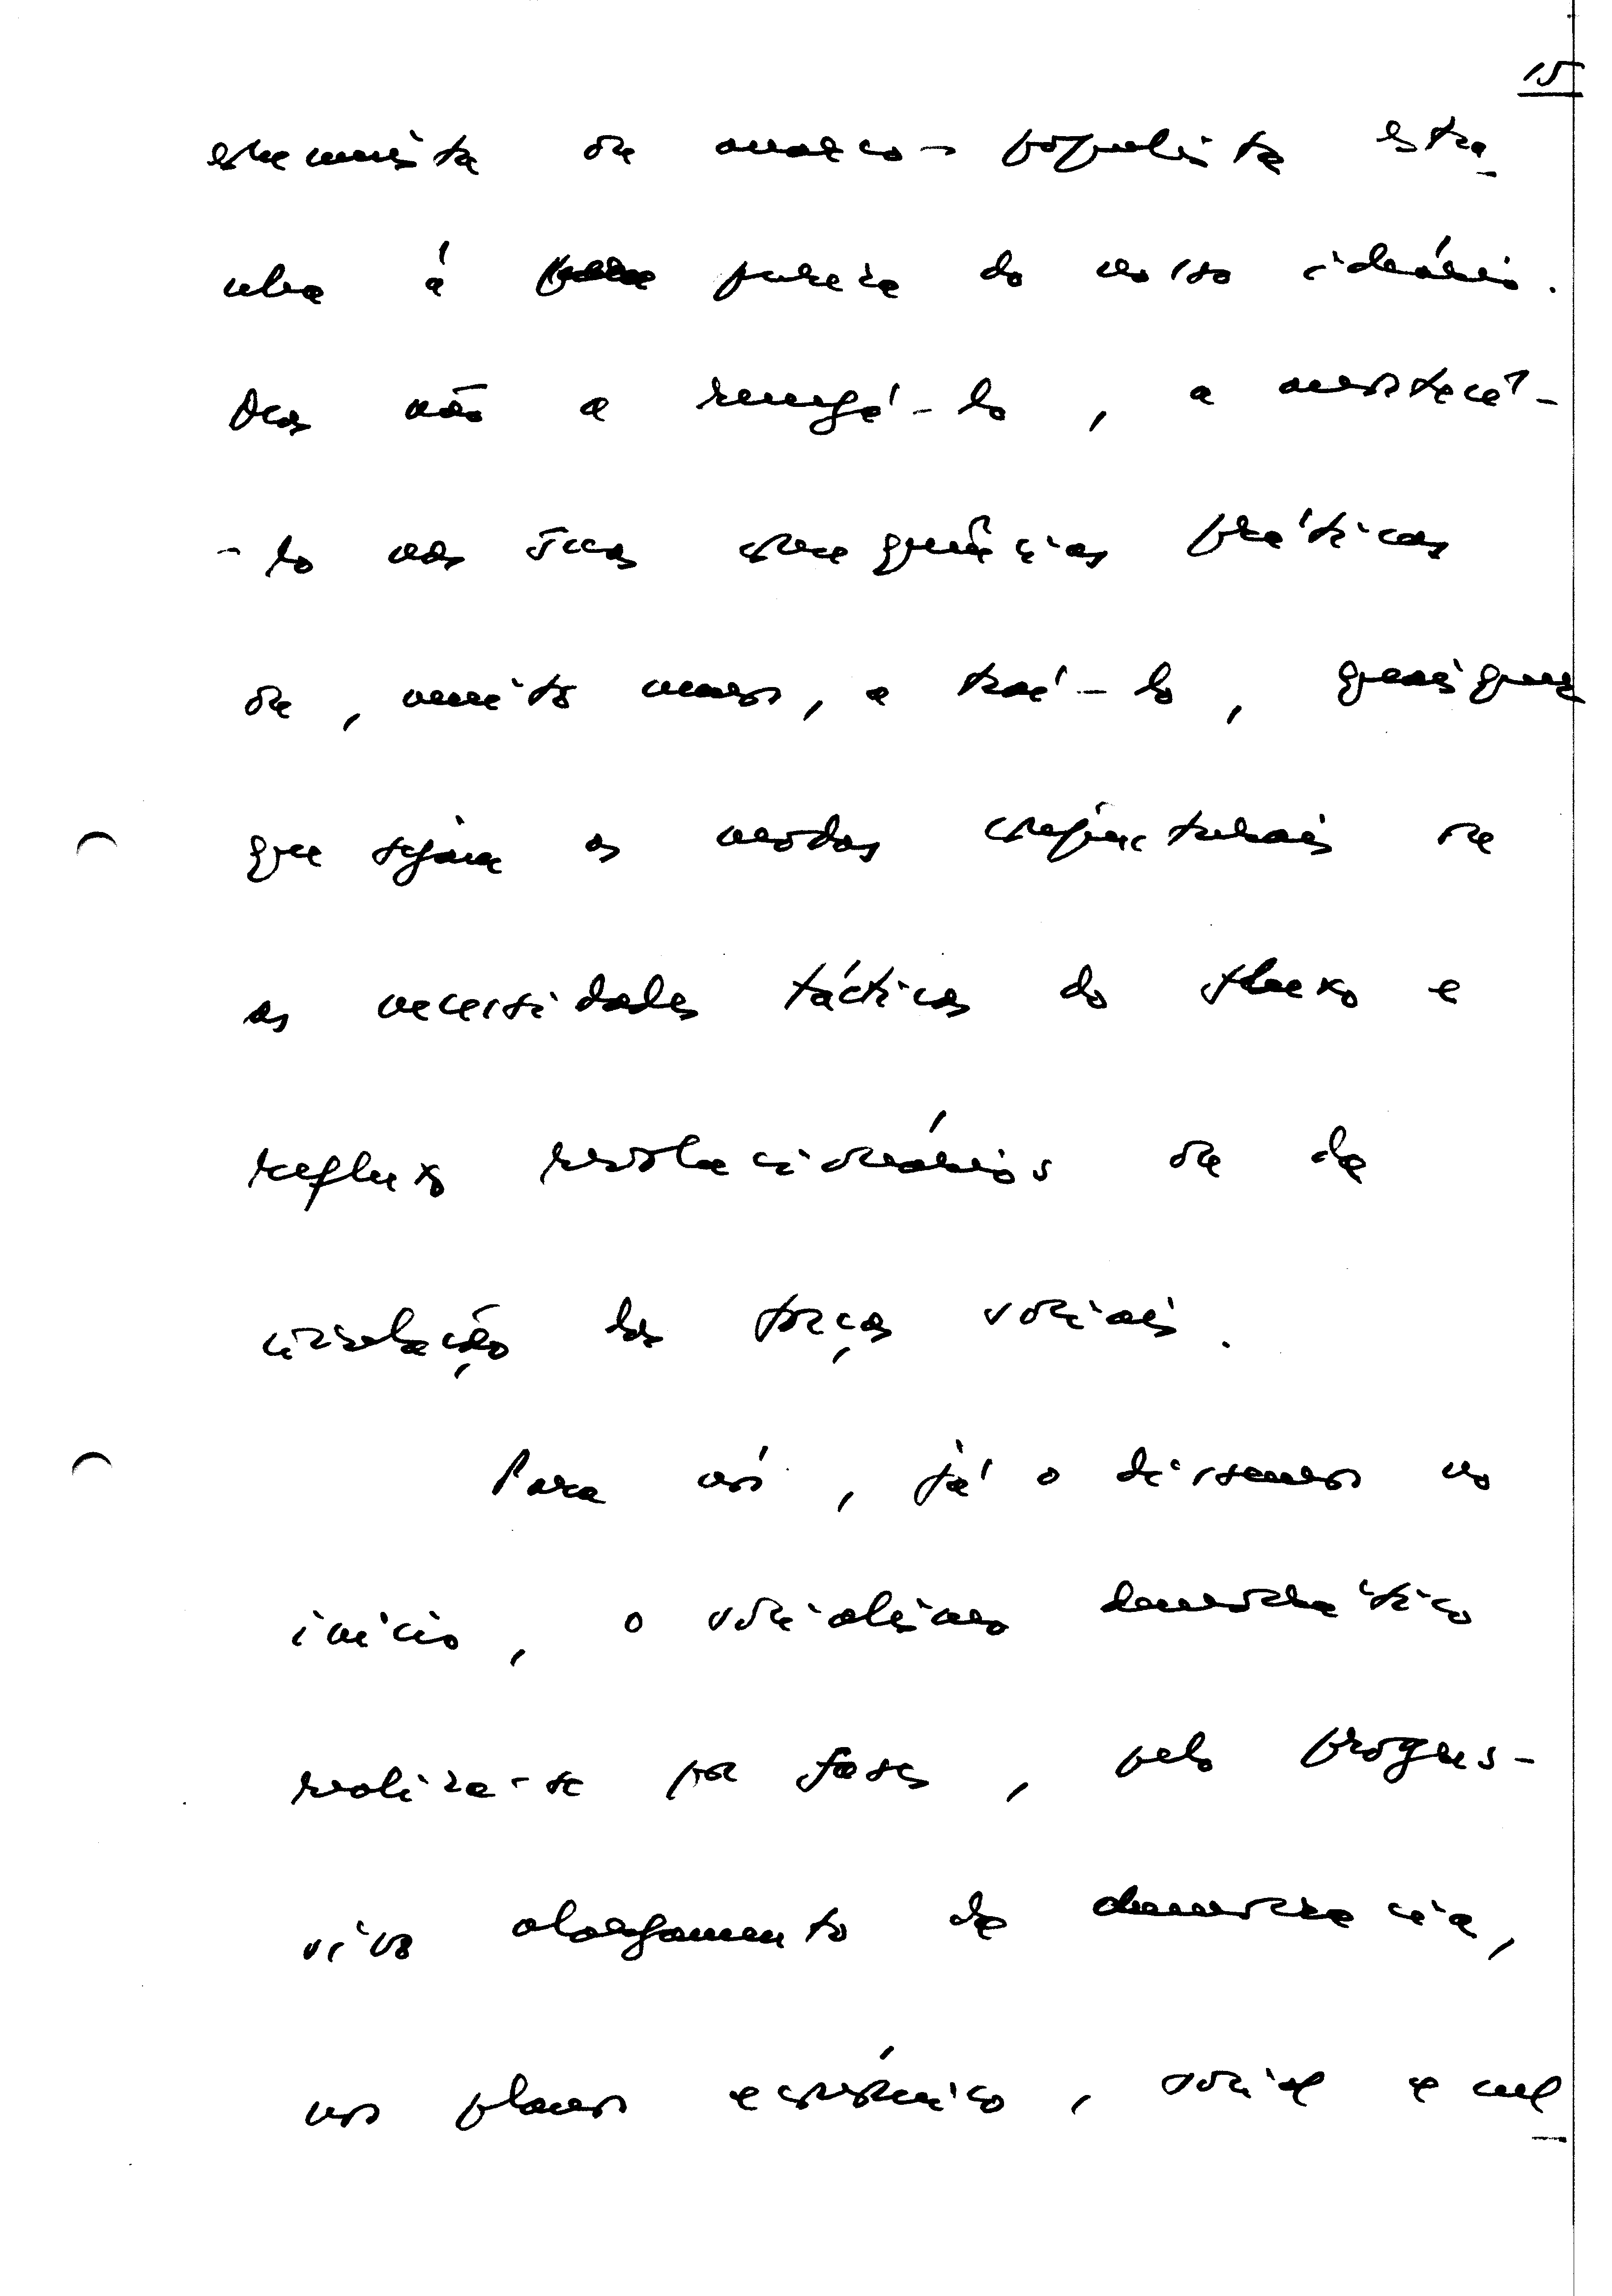 15
extremista ou anarco-populista estra-
nha à pureza do nosso ideário.
Mas não a renegá-lo, a
-lo nas suas consequências práticas
ou, muito menos, a traí-lo, quaisquer
que sejam os modos conjunturais ou
as necessidades tácticas do fluxo e
refluxo revolucionários ou da
circulação das forças sociais.
Para nós, já o dissemos no
início, o socialismo democrático
realiza-se por fases, pelo progres-
sivo alargamento da democracia,
nos planos económico, social e cul-